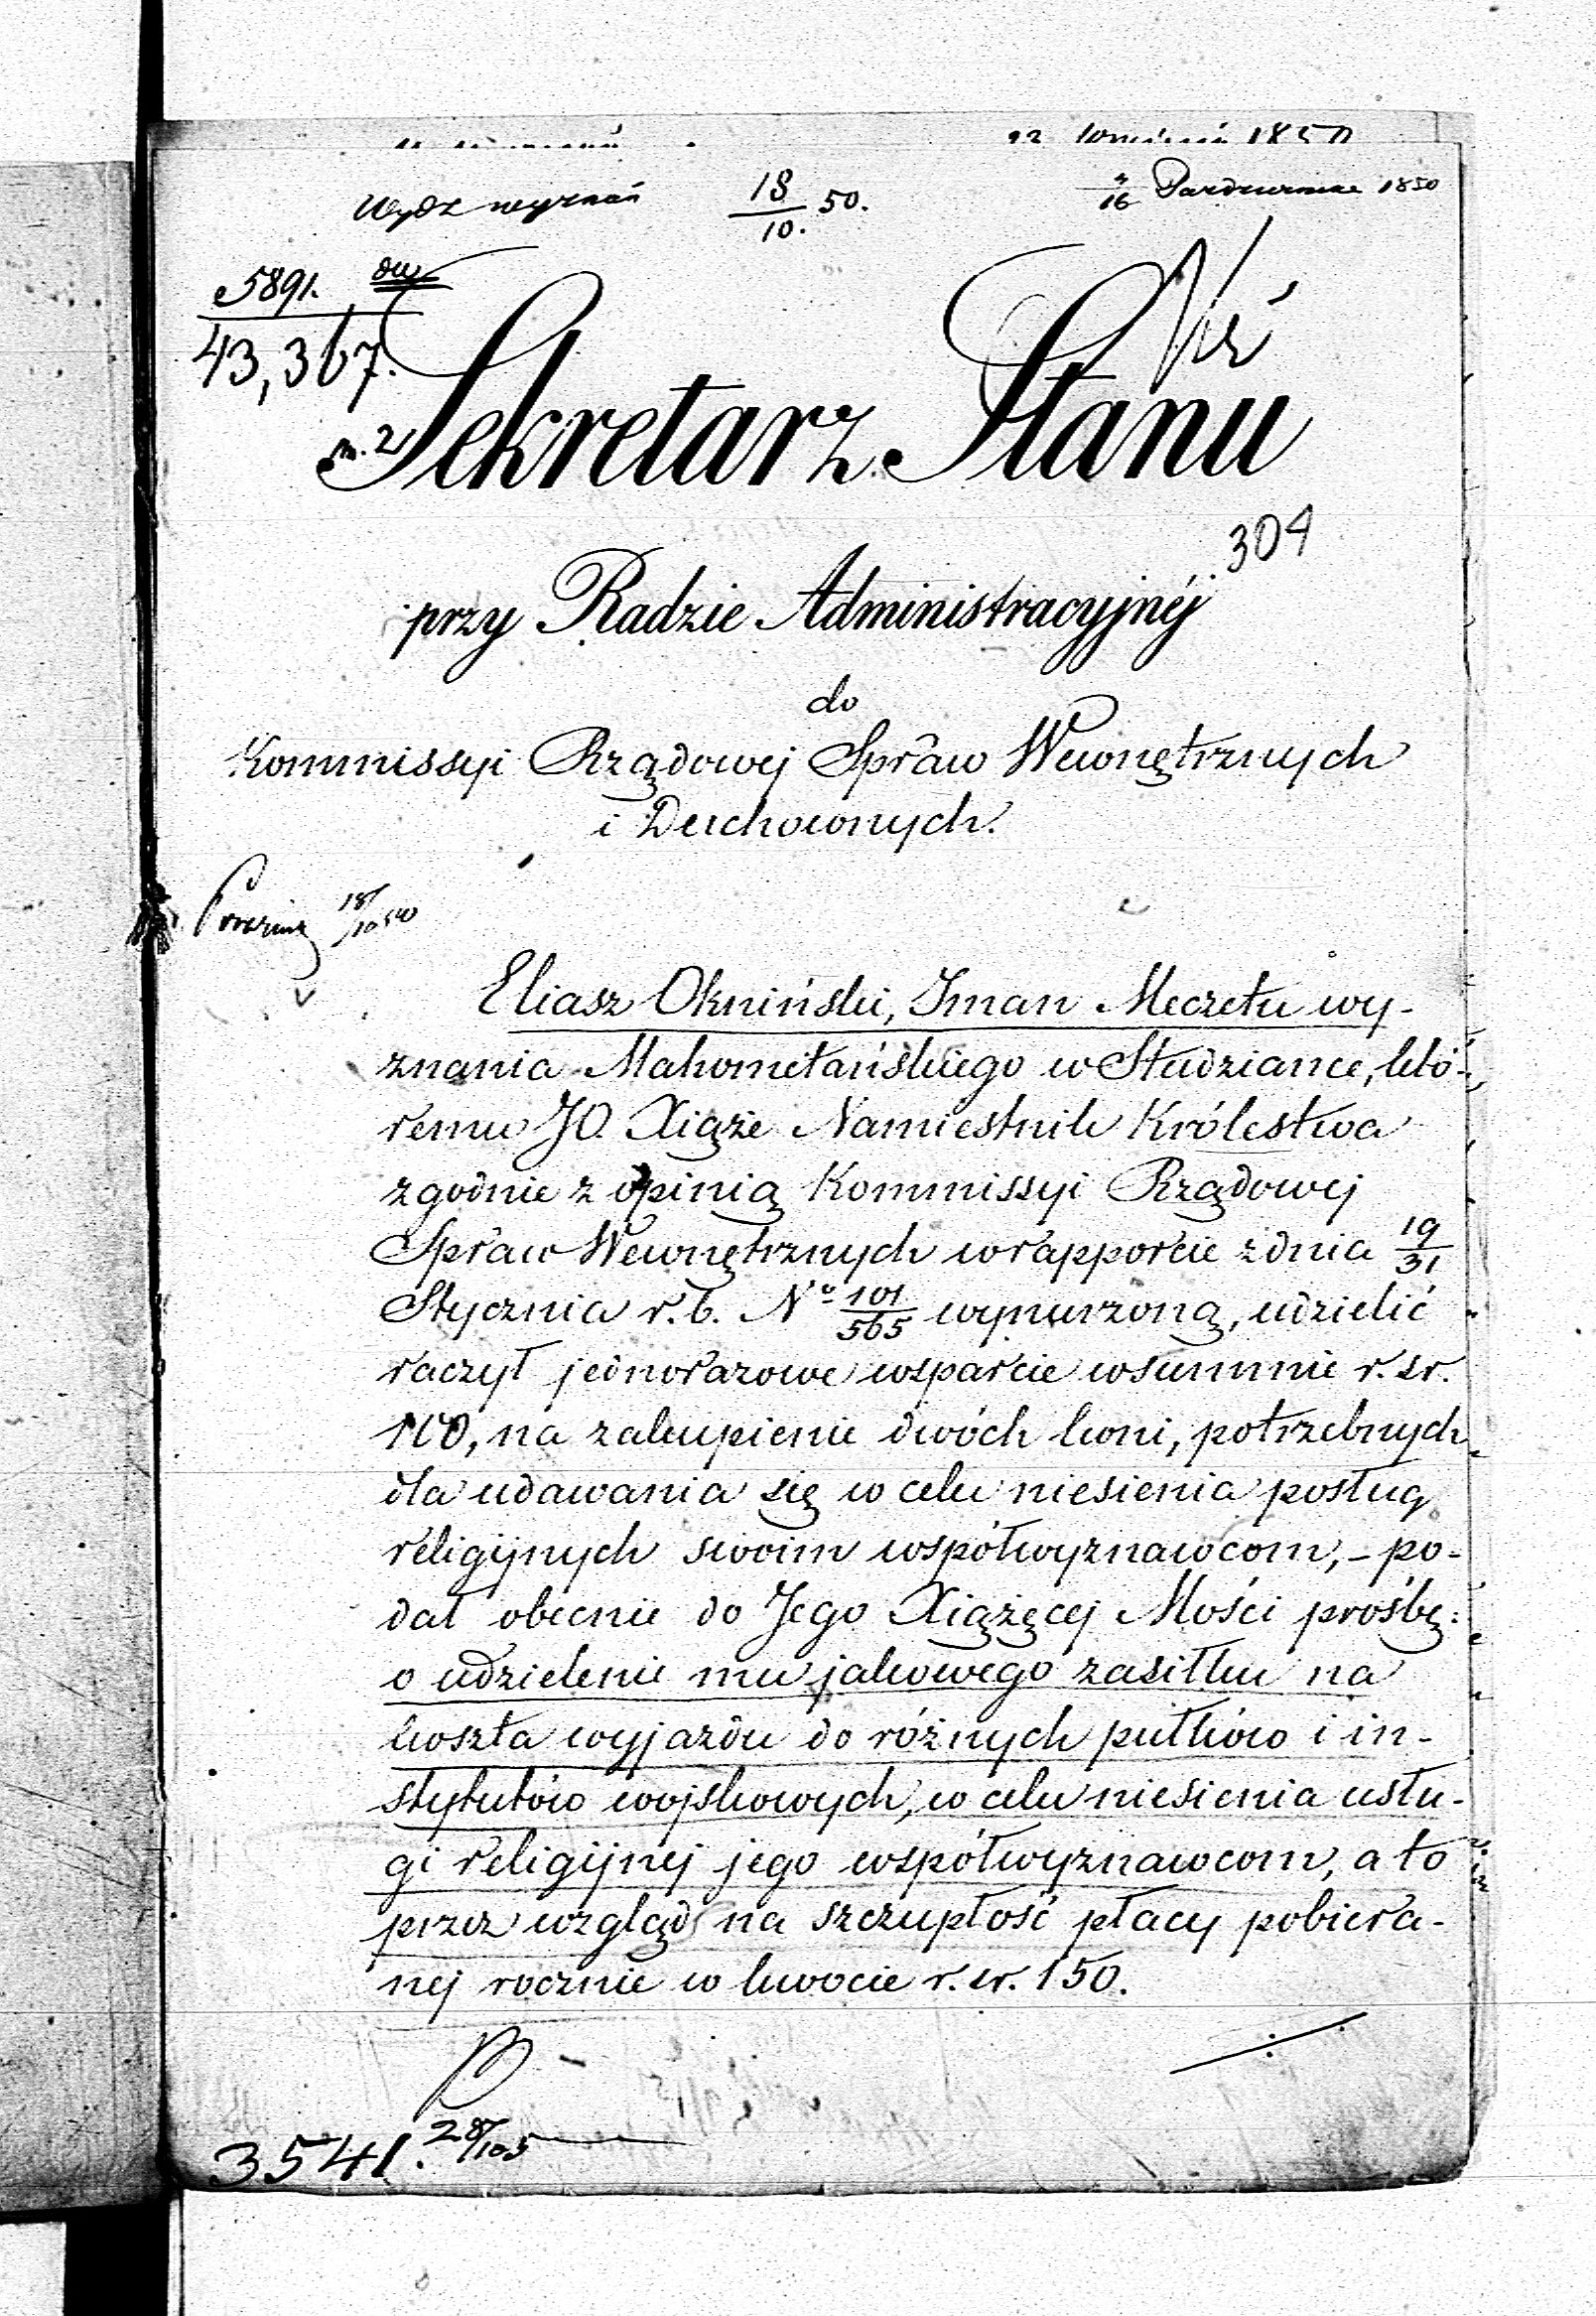 Wydz wyznań
18/10. 50.
4/16 Października 1850
5891.
43,367.
Sekretarz Stanu
304
przy Radzie Administracyjnéj
do
Kommissyi Rządowej Spraw Wewnętrznych
i Duchownych.
18/10 50
Eliasz Okniński, Iman Meczetu wy-
znania Mahometańskiego w Studziance, któ-
remu JO. Xiąże Namiestnik Królestwa
zgodnie z opinią Kommissyi Rządowej
Spraw Wewnętrznych w rapporcie z dnia 19/31
Stycznia r. b. No 101/565 wynurzoną, udzielić
raczył jednorazowe wsparcie w summie r. sr.
100, na zakupienie dwóch koni, potrzebnych
dla udawania się w celu niesienia posług
religijnych swoim współwyznawcom, – po-
dał obecnie do Jego Xiążęcej Mości prośbę
o udzielenie mu jakowego zasiłku na
koszta wyjazdu do różnych pułków i in-
stytutów wojskowych, w celu niesienia usłu-
gi religijnej jego współwyznawcom, a to
przez wzgląd na szczupłość płacy pobiera-
nej rocznie w kwocie r. sr. 150.
3541. 28/10 5